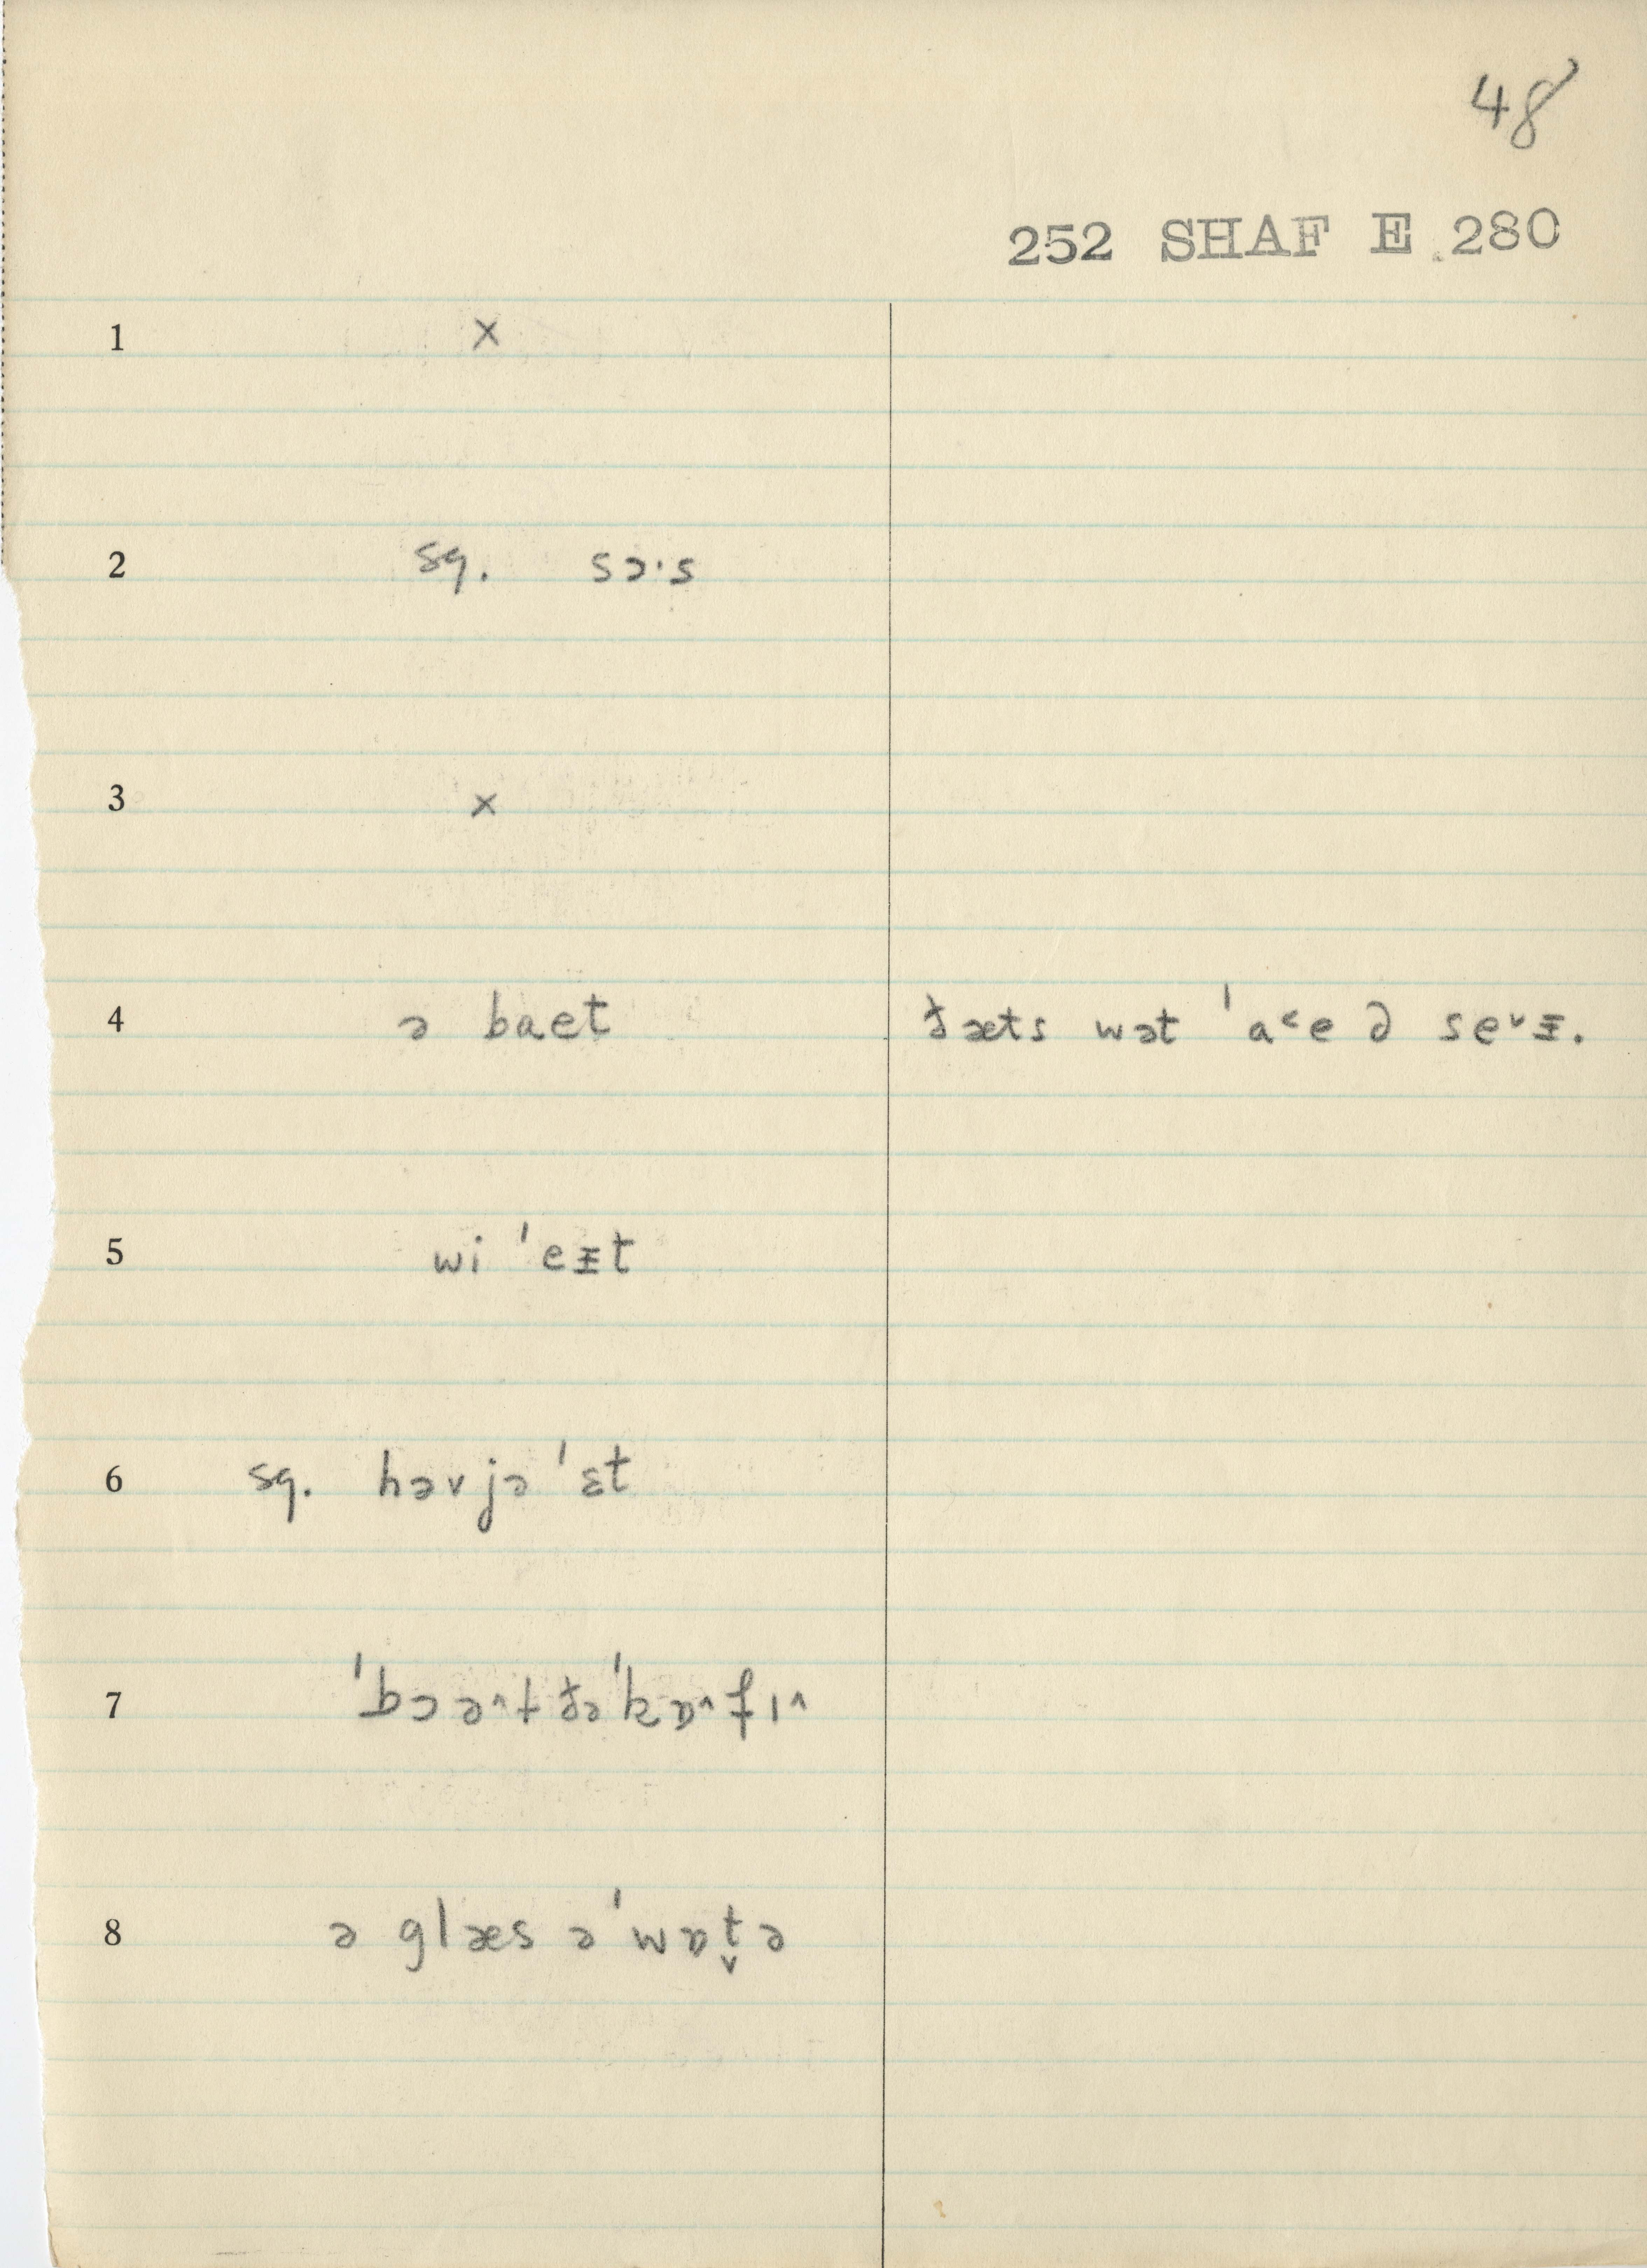 48
252 SHAF E 280
1 ×
2 sq. sɔ·s
3 ×
4 ə baet ðæts wət ˈa˂e ∂ se˅ᵻ.
5 wi ˈeᵻt
6 sq. həvjə ˈɛt
7 ˈbɔə^t ðəˈkɒ^fɪ^
8 ə glæs əˈwɒt̬ə